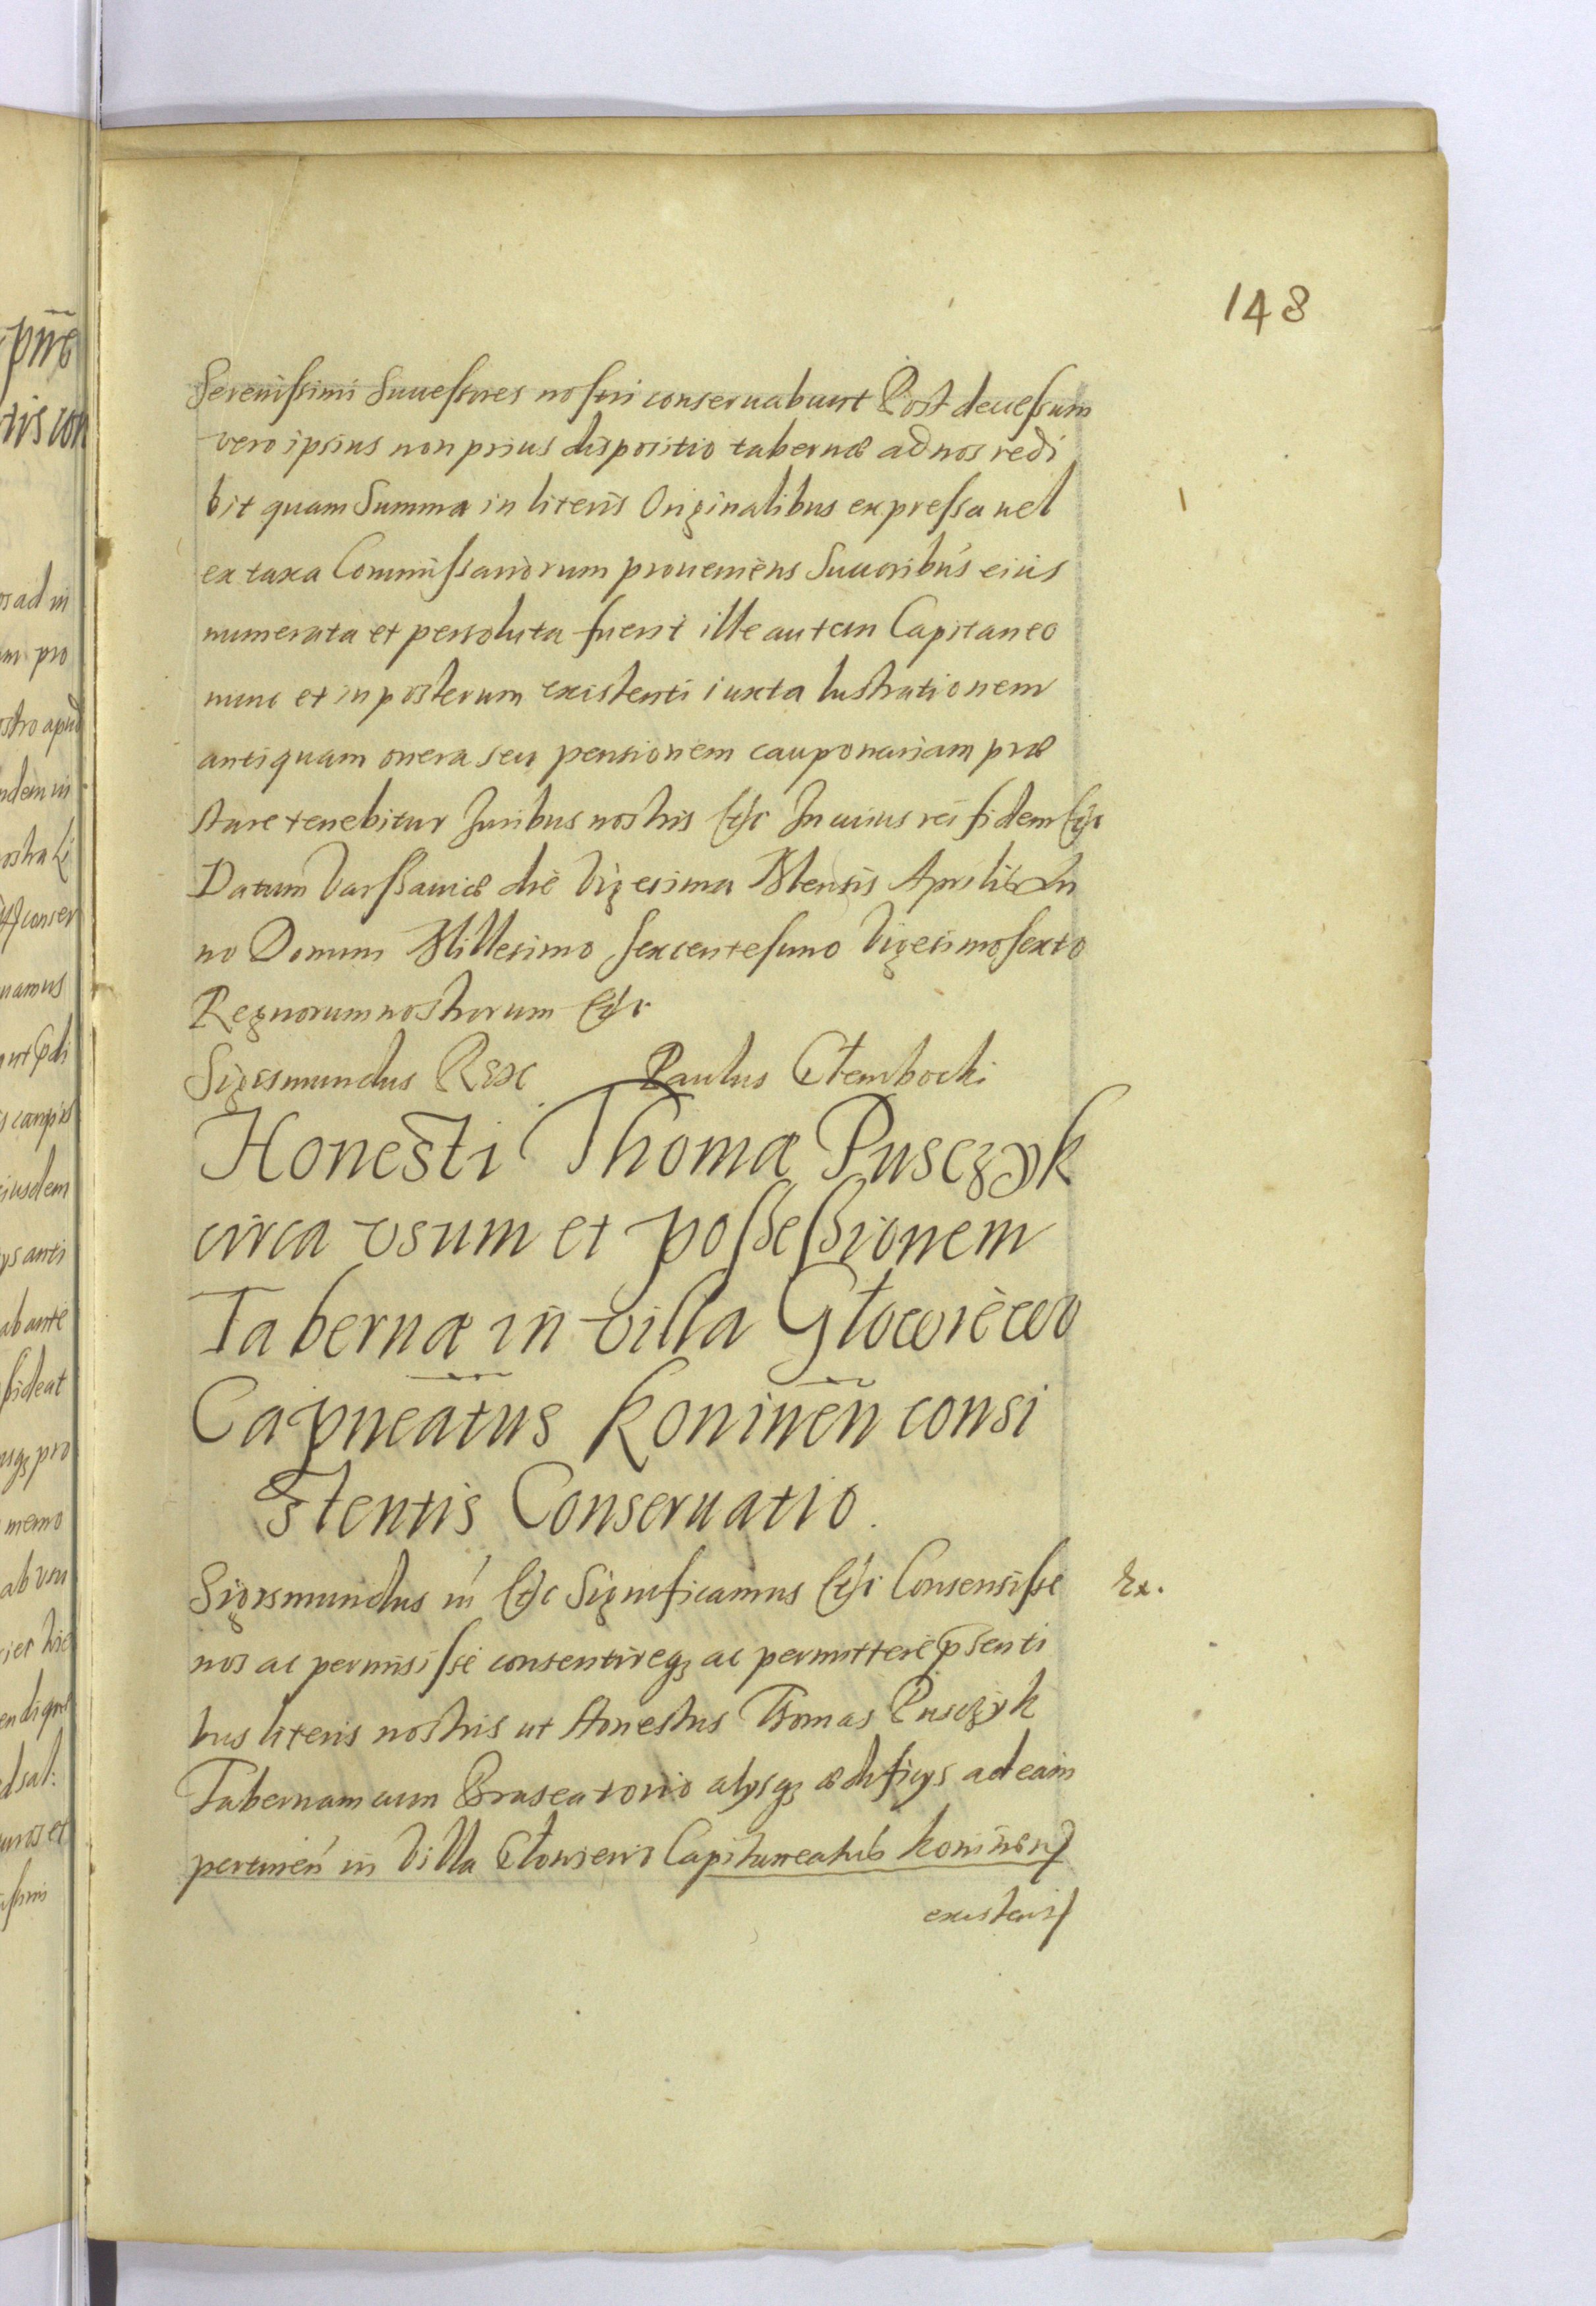 148
Serenissimi Successores nostri conseruabunt Post decessum
vero ipsius non prius dispositio tabernæ ad nos redi
bit quam Summa in literis Originalibus expressa uel
ex taxa Commissariorum proueniens Succoribus eius
numerata et persoluta fuerit ille autem Capitaneo
nunc et in posterum existenti iuxta lustrationem
antiquam onera seu pensionem cauponariam præ
stare tenebitur Juribus nostris etc In cuius rei fidem etc
Datum Varssauiæ die Vigesima Mensis Aprilis An
no Domini Millesimo sexcentesimo Vigesimosexto
Regnorum nostrorum etc
Sigismundus Rex Paulus Głembocki
Honesti Thomæ Pusczyk
circa vsum et possessionem
Tabernæ in villa Głowiewo
Capneatus Koninen consi
stentis Conseruatio.
Sigismundus iii etc Significamus etc Consensisse
Ex.
nos ac permisisse consentireq3 ac permittere pnsenti
bus literis nostris ut Honestus Thomas Pusczyk
Tabernam cum Braseatorio alysq3 ædificys ad eam
pertinen in Villa Głowiewo Capitaneatus Koninen
existens